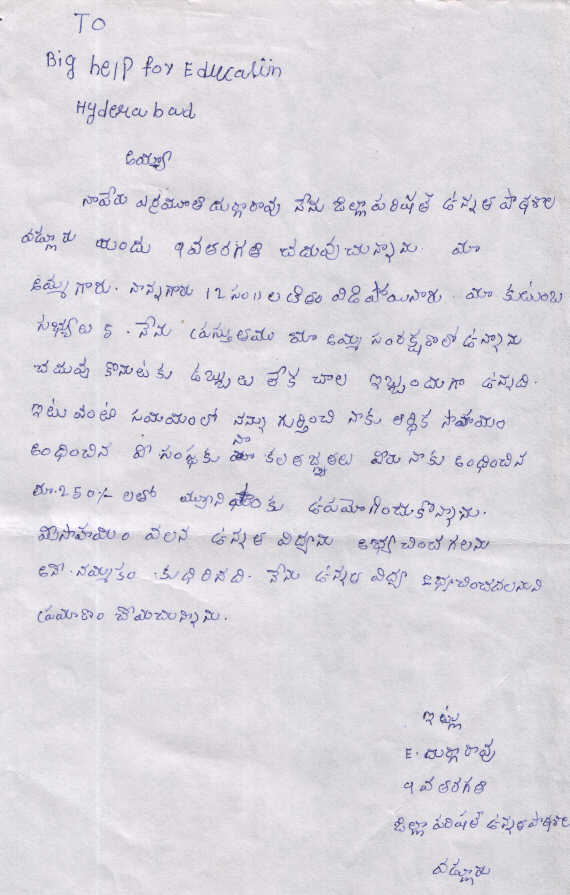 TO
Big help for Education
Hyderabad
అయ్యా
నాపేరు ఎర్రమూతి దుర్గారావు నేను జిల్లా పరిషత్ ఉన్నత పాఠశాల
వడ్లూరు యందు 9వ తరగతి చదువుచున్నాను. మా
అమ్మగారు. నాన్నగారు 12 సం॥ల క్రితం విడిపోయినారు. మా కుటుంబ
సభ్యులు 5. నేను ప్రస్తుతము మా అమ్మ సంరక్షణలో ఉన్నాను
చదువు కొనుటకు డబ్బులు లేక చాల ఇబ్బందుగా ఉన్నది.
ఇటువంటి సమయంలో నన్ను గుర్తించి నాకు ఆర్థిక సాహాయం
అందించిన మీ సంస్థకు నా కృతజ్ఞతలు మీరు నాకు అందించిన
రూ.250/- లతో ఉపయోగించుకొన్నాను.
మీసాహయం వలన ఉన్నత విద్యాను అభ్యసించగలను
అనే నమ్మకం కుదిరినది. నేను ఉన్నత విద్య అభ్యసించగలనని
ప్రమాణం చేయుచున్నాను.
ఇట్లు
E. దుర్గారావు
9వ తరగతి
జిల్లా పరిషత్ ఉన్నత పాఠశాల
వడ్లూరు